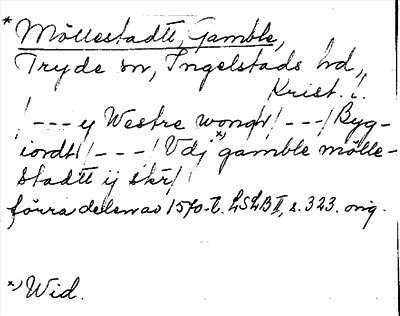 * Möllestadtt, Gamble,
Tryde sn, Ingelstads hd,
Krist. l.
/---ij Westre wongh/---/Byg-
iordt/---/Vdj *) gamble mölle-
stadtt ij skr/
förra delen av 1570-t. LSLB II, s. 323. orig.
*) Wid.